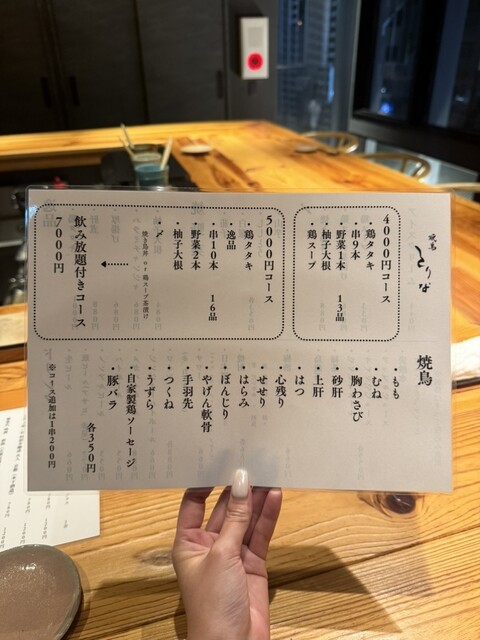 焼鳥 とりな
4000円コース
・鶏タタキ
・串9本
・野菜1本 13品
・柚子大根
・鶏スープ
5000円コース
・鶏タタキ
・逸品
・串10本 16品
・野菜2本
・柚子大根
・〆
焼き鳥丼 or 鶏スープ茶漬け
飲み放題付きコース
7000円
焼鳥
もも
・むね
・胸わさび
・砂肝
・上肝
・はつ
・心残り
・せせり
・はらみ
・ぼんじり
・やげん軟骨
・手羽先
・つくね
・うずら
・自家製鶏ソーセージ
・豚バラ
各350円
※コース追加は1串200円